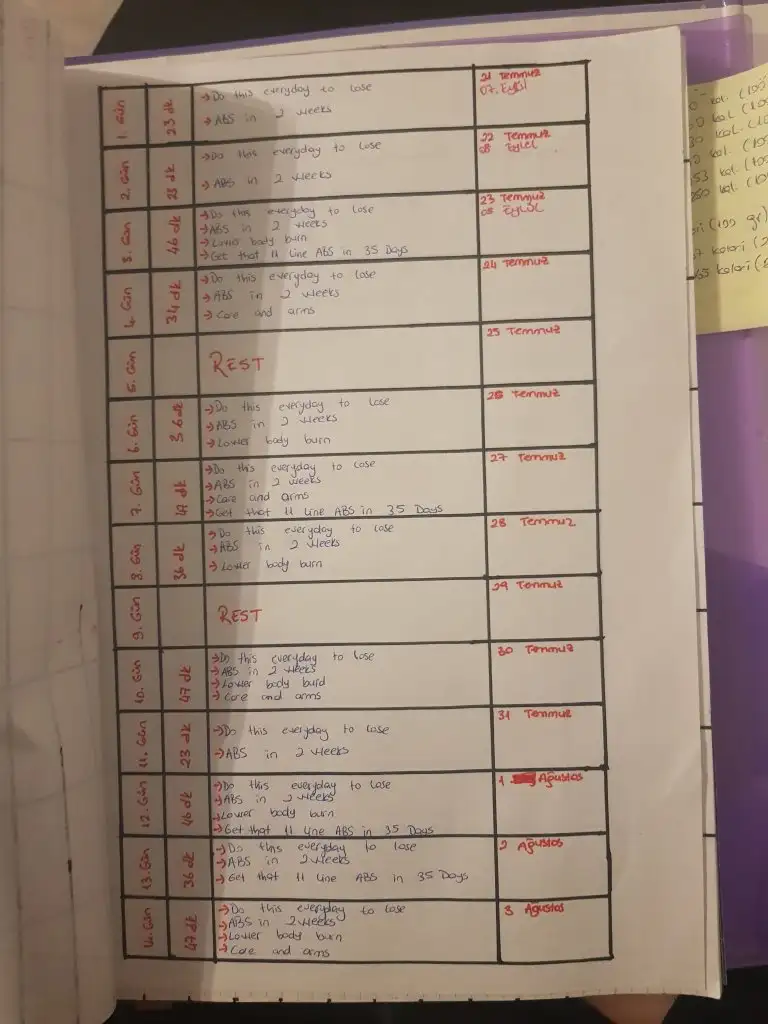 1. Gün
23 dk
→Do this everyday to lose
→ABS in 2 weeks
21 Temmuz
07. Eylül
2. Gün
23 dk
→Do this everyday to lose
→ABS in 2 weeks
22 Temmuz
08 Eylel
3. Gün
46 dk
→Do this everyday to lose
→ABS in 2 weeks
→Lower body burn
→Get that 11 Line ABS in 35 Days
23 Temmuz
Eylül
4. Gün
34 dk
→Do this everyday to lose
→ABS in 2 weeks
→Core and arms
24 Temmuz
5. Gün
REST
25 Temmuz
6. Gün
36 dk
→Do this everyday to lose
→ABS in 2 weeks
→Lower body burn
26 Temmuz
7. Gün
47 dk
→Do this everyday to lose
→ABS in 2 weeks
→Core and arms
→Get that 11 Line ABS in 35 Days
27 Temmuz
8. Gün
36 dk
→Do this everyday to lose
→ABS in 2 weeks
→Lower body burn
28 Temmuz
9. Gün
REST
29 Temmuz
10. Gün
47 dk
→Do this everyday to lose
→ABS in 2 weeks
→Lower body burd
→Core and arms
30 Temmuz
11. Gün
23 dk
→Do this everyday to lose
→ABS in 2 weeks
31 Temmuz
12. Gün
46 dk
→Do this everyday to lose
→ABS in 2 weeks
→Lower body burn
→Get that 11 Line ABS in 35 Days
1 Ağustos
13. Gün
36 dk
→Do this everyday to lose
→ABS in 2 weeks
→Get that 11 Line ABS in 35 Days
2 Ağustos
14. Gün
47 dk
→Do this everyday to lose
→ABS in 2 weeks
→Lower body burn
→Core and arms
3 Ağustos
kal.
kal.
kal.
kal.
53 kal.
kal.
(100 gr)
kalori
kalori